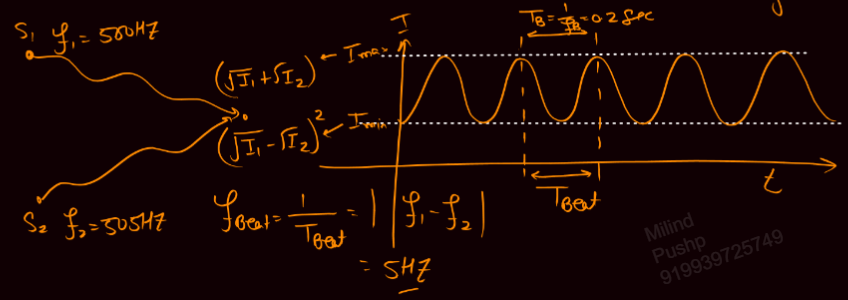 S₁ f₁ = 500HZ
(√I₁+√I₂)
(√I₁-√I₂)²
S₂ f₂ = 505HZ
I
Imax
Imin
T_B = 1/f_B = 0.2 sec
t
T_Beat
f_Beat = 1/T_Beat = | f₁ - f₂ |
= 5HZ
Milind
Pushp
919939725749